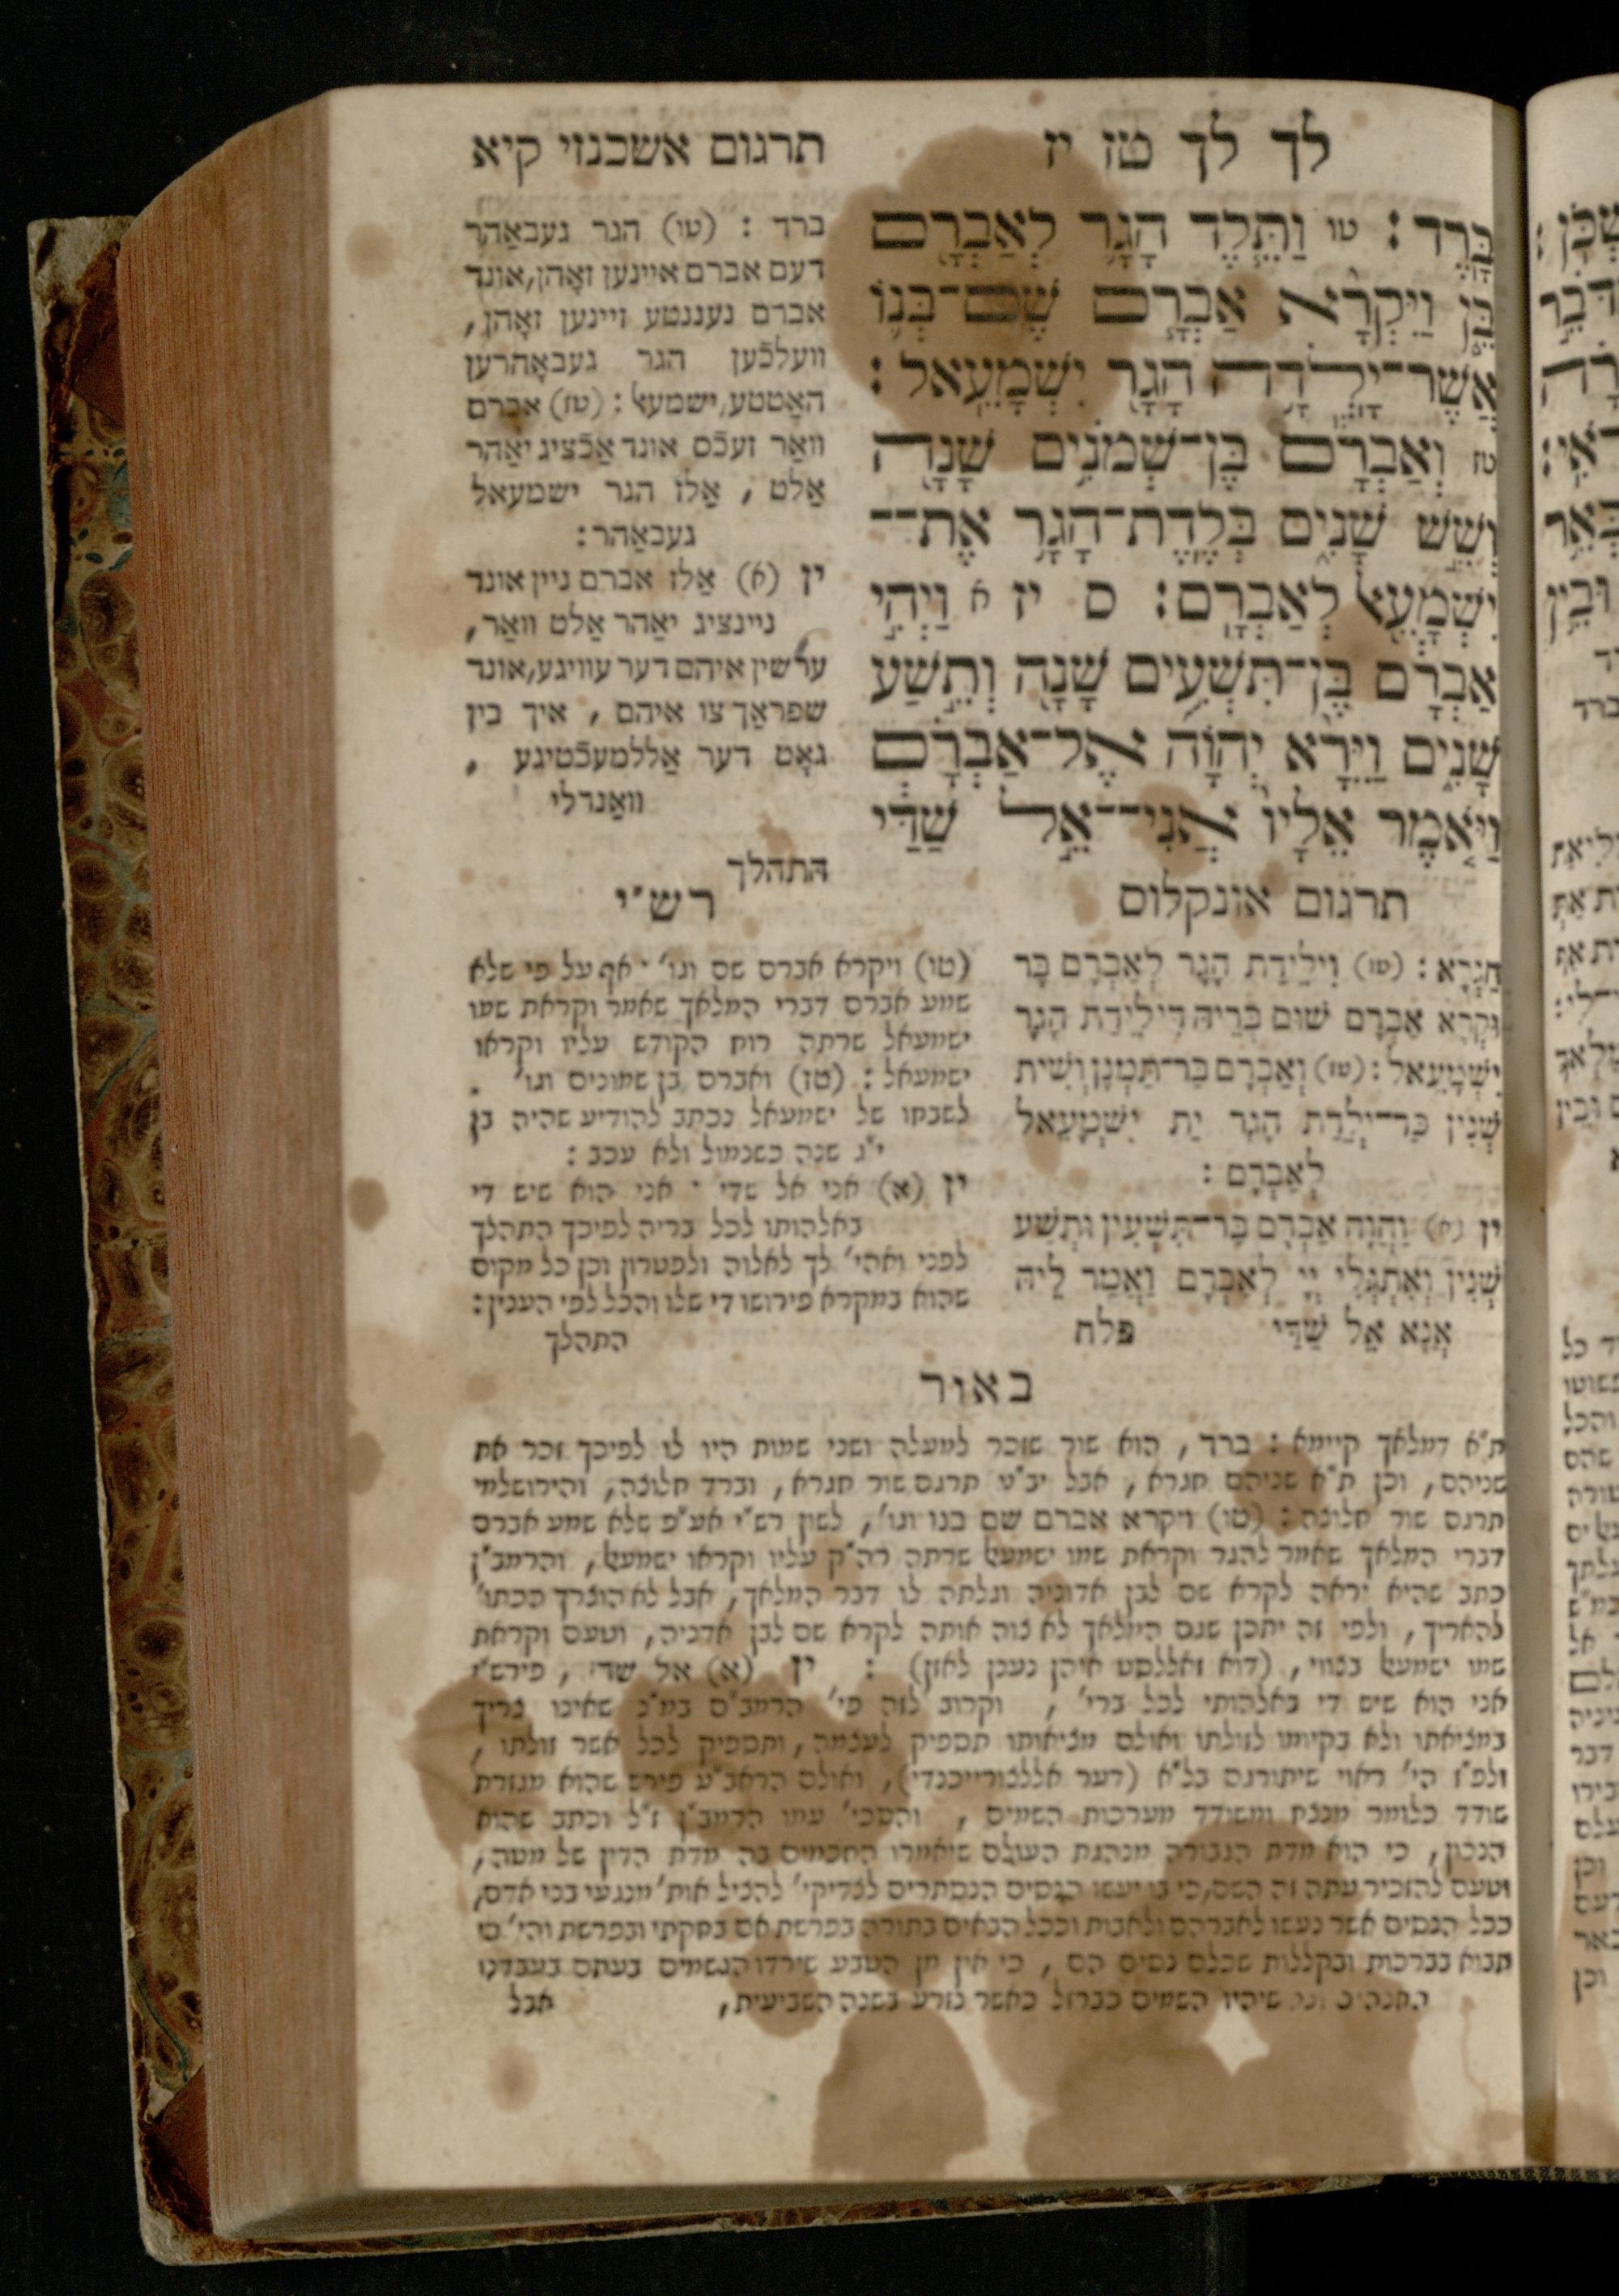 לך לך טז יז
תרגום אשכנזי קיא
בָּרֶד : טו וַתֵּלֶד הָגָר לְאַבְרָם
בֵּן וַיִּקְרָא אַבְרָם שֶׁם־בְּנוֹ
אֲשֶׁר־יָלְדָה הָגָר יִשְׁמָעֵאל :
טז וְאַבְרָם בֶּן־שְׁמֹנִים שָׁנָה
וְשֵׁשׁ שָׁנִים בְּלֶדֶת־הָגָר אֶת־
יִשְׁמָעֵאל לְאַבְרָם : ס יז א וַיְהִי
אַבְרָם בֶּן־תִּשְׁעִים שָׁנָה וְתֵשַׁע
שָׁנִים וַיֵּרָא יְהוָֹה אֶל־אַבְרָם
וַיֹּאמֶר אֵלָיו אֲנִי־אֵל שַׁדַּי
התהלך
ברד : (טו) הגר געבאַהר
דעם אברם איינען זאָהן, אונד
אברם נעננטע זיינען זאָהן,
וועלכֿען הגר געבאָהרען
האַטטע, ישמעאל : (טז) אברם
וואַר זעכֿס אונד אַכֿציג יאַהר
אַלט , אַלז הגר ישמעאל
געבאַהר :
יז (א) אַלז אברם ניין אונד
ניינציג יאַהר אַלט וואַר,
ערשין איהם דער עוויגע, אונד
שפראַך צו איהם , איך בין
גאָט דער אַללמעכֿטיגע ,
וואַנדלי
תרגום אונקלוס
חַגְרָא : (טו) וִילֵידַת הָגָר לְאַבְרָם בָּר
וּקְרָא אַבְרָם שׁוּם בְּרֵיהּ דִּילֵידַת הָגָר
יִשְׁמָעֵאל : (טז) וְאַבְרָם בַּר־תְּמָנָן וְשִׁית
שְׁנִין כַּד־יְלֵידַת הָגָר יַת יִשְׁמָעֵאל
לְאַבְרָם :
יז (א) וַהֲוָה אַבְרָם בַּר־תִּשְׁעִין וּתְשַׁע
שְׁנִין וְאִתְגְּלִי יְיָ לְאַבְרָם וַאֲמַר לֵיהּ
אֲנָא אֵל שַׁדַּי פלח
רש״י
(טו) ויקרא אברם שם וגו׳ ־ אף על פי שלא
שמע אברם דברי המלאך שאמר וקראת שמו
ישמעאל שרתה רוח הקודש עליו וקראו
ישמעאל : (טז) ואברם בן שמונים וגו׳ .
לשבחו של ישמעאל נכתב להודיע שהיה בן
י״ג שנה כשנמול ולא עכב :
יז (א) אני אל שדי ־ אני הוא שיש די
באלהותו לכל בריה לפיכך התהלך
לפני ואהי׳ לך לאלוה ולפטרון וכן כל מקום
שהוא במקרא פירושו די שלו והכל לפי הענין :
התהלך
באור
ת״א דמלאך קיימא : ברד , הוא שור שזכר למעלה ושני שמות היו לו לפיכך זכר את
שניהם, וכן ת״א שניהם חגרא , אבל יב״ע תרגם שור חגרא , וברד חלוצה, והירושלמי
תרגם שור חלוצה : (טו) ויקרא אברם שם בנו וגו׳, לשון רש״י אע״פ שלא שמע אברם
דברי המלאך שאמר להגר וקראת שמו ישמעאל שרתה רה״ק עליו וקראו ישמעאל, והרמב״ן
כתב שהיא יראה לקרא שם לבן אדוניה וגלתה לו דבר המלאך, אבל לא הוצרך הכתו׳
להאריך, ולפי זה יתכן שגם המלאך לא צוה אותה לקרא שם לבן אדניה, וטעם וקראת
שמו ישמעאל בצווי, (דוא זאללסט איהן נענן לאזן) : יז (א) אל שדי , פירש״י
אני הוא שיש די באלהותי לכל ברי׳ , וקרוב לזה פי׳ הרמב״ם במ״נ שאינו צריך
במציאתו ולא בקיומו לזולתו ואולם מציאותו תספיק לעצמה, ותספיק לכל אשר זולתו ,
ולפ״ז הי׳ ראוי שיתורגם בל״א (דער אללצורייכנדי), ואולם הראב״ע פירש שהוא מגזרת
שודד כלומר מנצח ומשודד מערכות השמים , והסכי׳ עמו הרמב״ן ז״ל וכתב שהוא
הנכון, כי הוא מדת הגבורה מנהגת העולם שיאמרו החכמים בה מדת הדין של מטה,
וטעם להזכיר עתה זה השם, כי בו יעשו הנסים הנסתרים לצדיקי׳ להציל אות׳ מנגעי בני אדם,
ככל הנסים אשר נעשו לאברהם ולאבות וככל הבאים בתורה בפרשת אם בחקתי ובפרשת והי׳ כי
תבוא בברכות ובקללות שכלם נסים הם , כי אין מן הטבע שירדו הגשמים בעתם בעבדנו
שיהיו השמים כברזל כאשר נזרע בשנה השביעית,
אבל